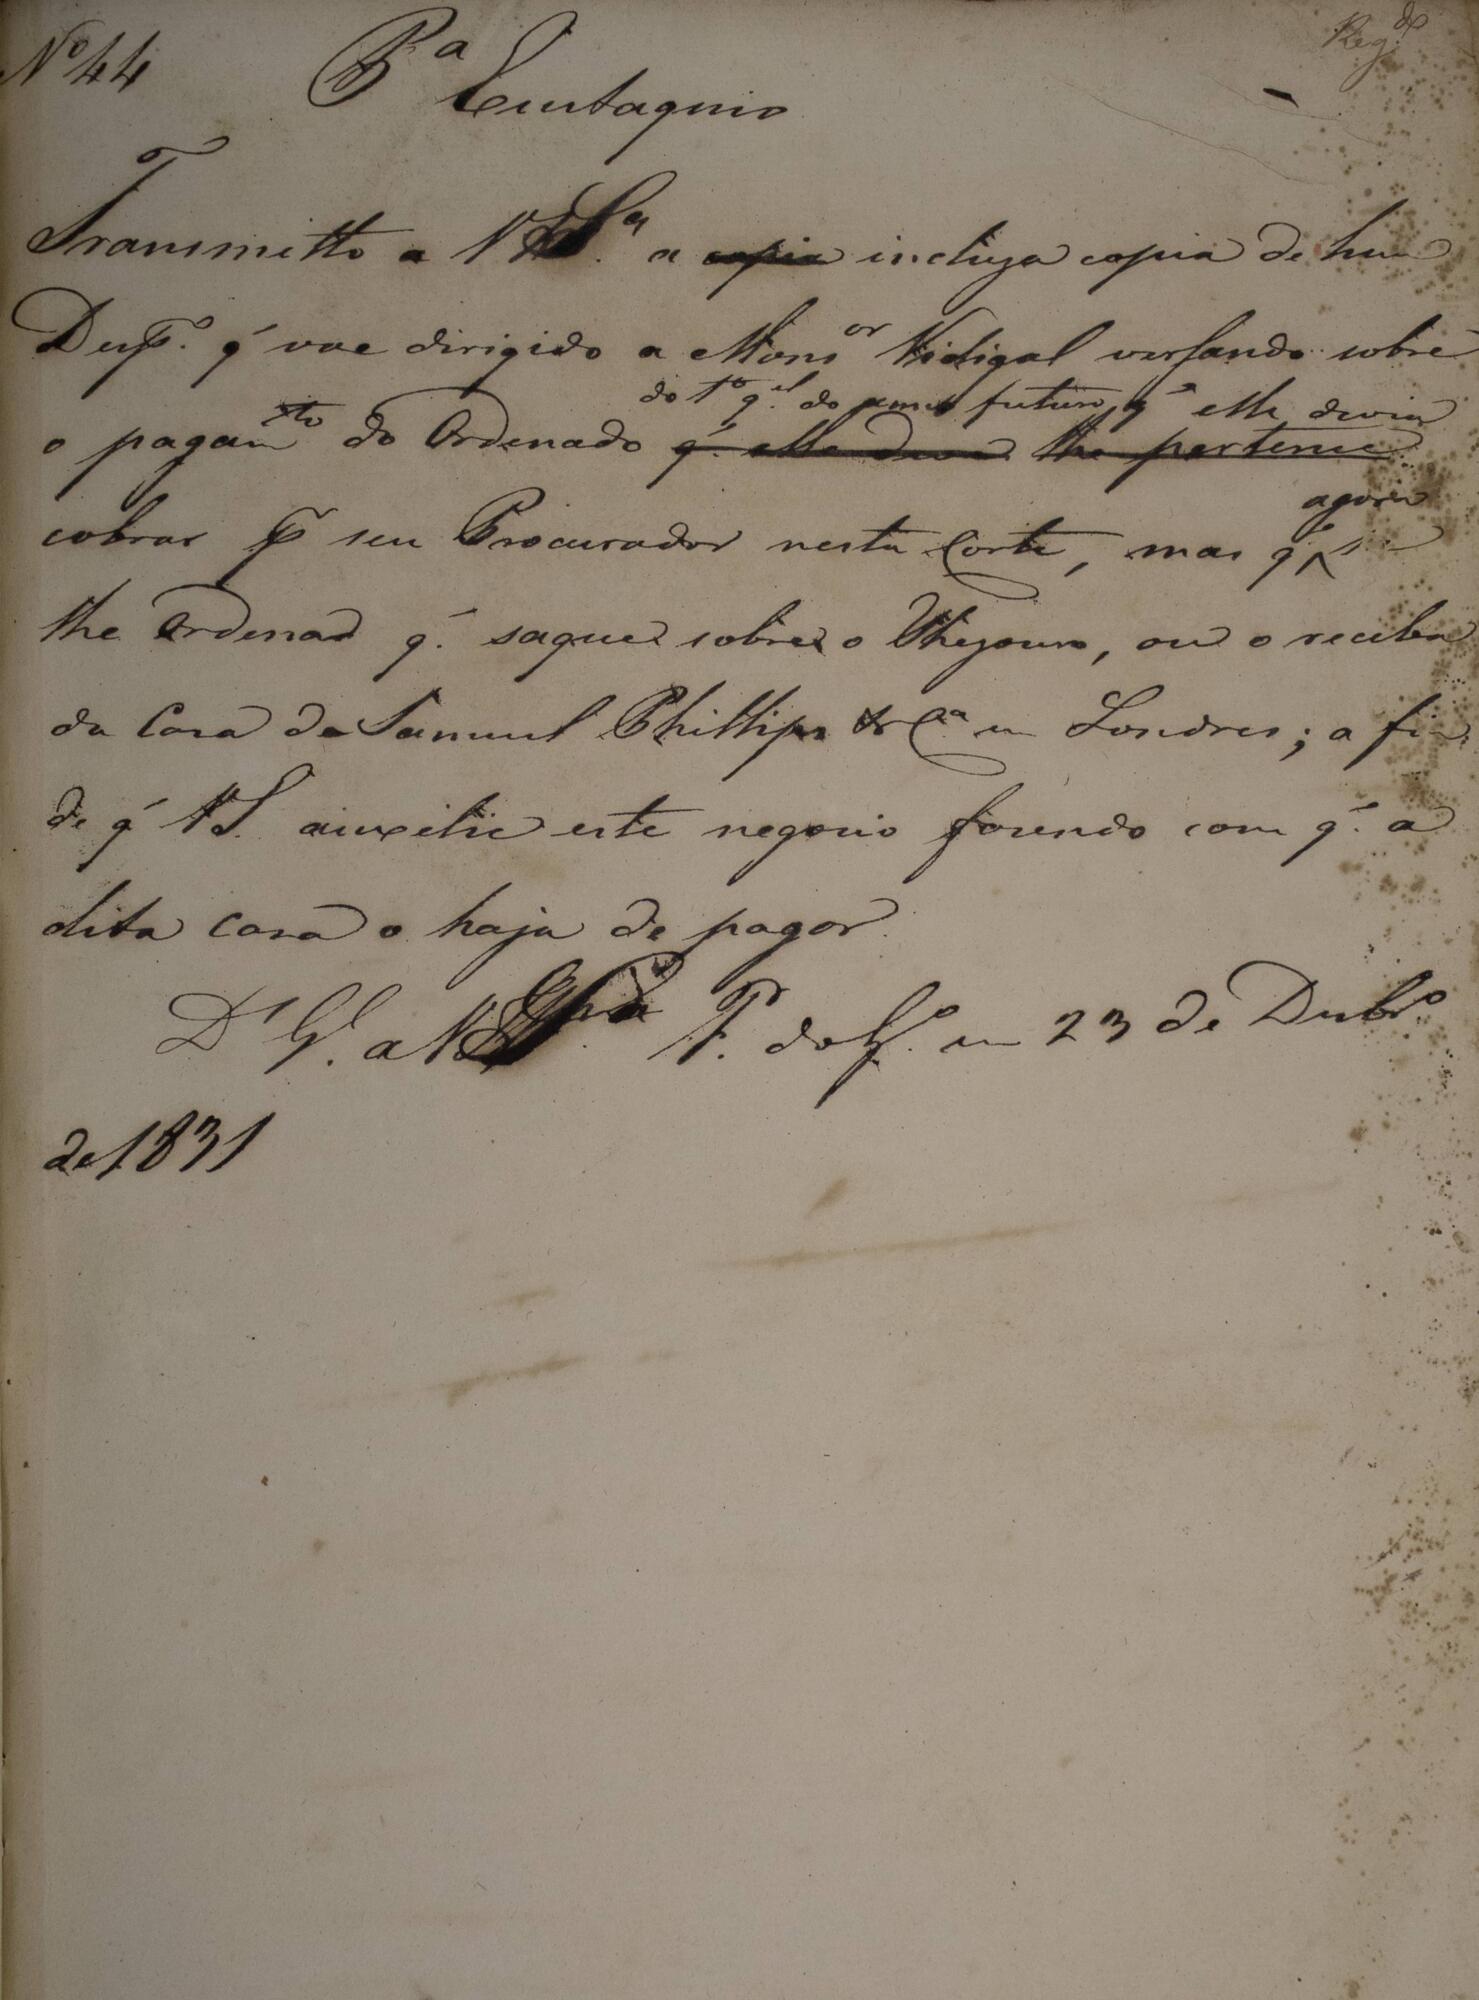 Nº 44
Pª Eustaquio
Reg.do
Transmitto a V S.ª a copia incluza copia de hum
Desp.º q' vae dirigido a Mons.or Vidigal versando sobre
do 1º q.el do anno futuro, q' elle devia
o pagam.to do Ordenado q' elle deve lhe pertence
cobrar p seu Procurador nesta Corte, mas q' agora se
lhe Ordena q' saque sobre o Thezouro, ou o receba
da Casa de Samuel Phillips & C.ª em Londres; a fim
de q' V S. auxilie este negocio fazendo com q' a
dita casa o haja de pagar.
D.s G.e a V S. P. do G.º em 23 de Dezbr.º
de 1831